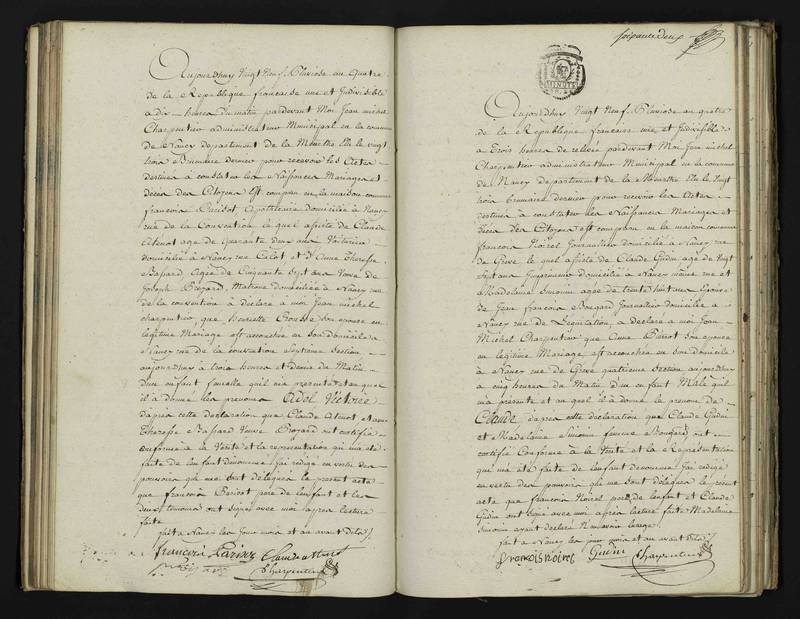 Aujourdhuy vingt neuf Pluviose an quatre
de la Republique francaise une et Indivisible
a Dix heures du matin pardevant Moi Jean michel
Charpentier administrateur Municipal de la commune
de Nancy departement de la Meurthe Elu le vingt
trois Brumaire dernier pour recevoir les Actes
destinés à constater les Naissances Mariages et
décès des Citoyens Est comparu en la maison commune
francois Parisot domicilié à Nancy
rue de la Convention le quel assisté de Claude
agé de quarante deux ans Voiturier
domicilié à Nancy rue Calot et de Anne Theresse
Bapard Agée de Cinquante sept ans Veuve de
Joseph Brogard Matrone domiciliée à Nancy rue
de la convention à déclaré à moi Jean michel
charpentier que henriette Crousse son epouse en
legitime Mariage est accouchée en son domicile à
Nancy rue de la convention Septieme Section
aujourdhuy à trois heures et demie du Matin
Dun enfant femelle quil m'a presenté et au quel
il à donné les prenoms Adel Victoire
daprès cette declaration que Claude et anne
Theresse Bapard Veuve Brogard ont certifié
conforme à la Verité et la representation qui m'a été
faite de lenfant denommé Jai redigé en vertu des
pouvoirs qui me sont délégués le present acte
que francois Parisot pere de lenfant et les
deux temoins ont signés avec moi après lecture
faite
fait à Nancy les jour mois et an avant dits
francois Parisot
Charpentier
soixante deux
Aujourdhuy Vingt Neuf Pluviose an quatre
de la Republique francaise une et Indivisible
a Trois heures de relevée pardevant Moi Jean michel
Charpentier administrateur Municipal de la commune
de Nancy departement de la Meurthe Elu le Vingt
trois Brumaire dernier pour recevoir les Actes
destinés à constater les Naissances Mariages et
décès des Citoyens est comparu en la maison commune
francois Noirel Journallier domicilié à Nancy rue
de Greve le quel assisté de Claude Gudin agé de Vingt
sept ans Imprimeur Domicilié à Nancy même rue et
Madelaine Simonin agée de trente huit ans Epouse
de Jean francois Bougard Journallier domicilié à
Nancy rue de Legislation à declaré à moi Jean
Michel Charpentier que Anne Pierrot son epouse
en legitime Mariage est accouchée en son domicile
à Nancy rue de Greve quatrieme Section aujourdhuy
à cinq heures du Matin d'un enfant Male quil
m'a présenté et au quel il à donné le prenom de
Claude daprès cette declaration que Claude Gudin
et Madelaine Simonin femme Bougard ont
certifié Conforme à la Verité et la Representation
qui m'a été faite de lenfant denommé Jai redigé
en vertu des pouvoirs qui me sont délégués le present
acte que francois Noirel pere de lenfant et Claude
Gudin ont signé avec moi après lecture faite Madelaine
Simonin ayant declaré Nesavoir lusage
fait à Nancy les jour mois et an avant dits
francois Noirel Gudin Charpentier